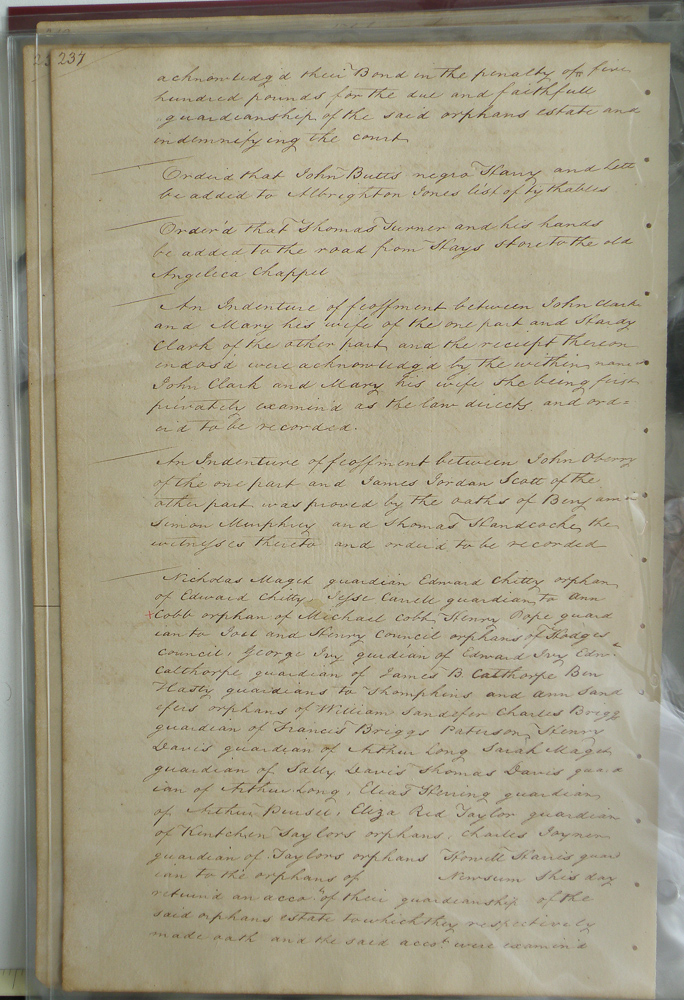 237
acknowledg'd their Bond in the penalty of five
hundred pounds for the due and faithfull
guardianship of the said orphans estate and
indemnifying the court
Orderd that John Butts negro Harry and Lett
be added to Albrighton Jones list of tythables
Order'd that Thomas Turner and his hands
be added to the road from Hays store to the old
Angelica Chappel
An Indenture of feoffment between John Clark
and Mary his wife of the one part and Hardy
Clark of the other part, and the reciept thereon
indors'd were acknowledg'd by the within
John Clark and Mary his wife she being first
privately examin'd as the law directs and ord=
er'd to be recorded.
An Indenture of feoffment between John Oberry
of the one part and James Jordan Scott of the
other part was proved by the oaths of Benjamin
Simon Murphrey and Thomas Handcocke, the
witnesses thereto and orderd to be recorded
Nicholas Maget guardian Edward Chitty orphan
of Edward Chitty, Jesse Carrell guardian to Ann
Cobb orphan of Michael Cobb, Henry Pope guard
ian to Joel and Henry Council orphans of Hodges
Council, George Ivy gurdian of Edward Ivy
Calthorpe guardian of James B Calthorpe Ben
Hasty guardians to Thomphins and Ann Sand
efers orphans of William Sandefer Charles Briggs
guardian of Francis Briggs Paterson, Henry
Davis guardian of Arthur Long, Sarah Maget
guardian of Sally Davis Thomas Davis guard
ian of Arthur Long, Elias Herring guardian
of Arthur Eliza Red Taylor guardian
of Kentchen Taylors orphans, Charles Joyner
guardian of Taylors orphans Howell Harris guard
ian to the orphans of Newsum this day
return'd an acco.t of their guardianship of the
said orphans estate to which they respectively
made oath and the said acco.ts were examin'd